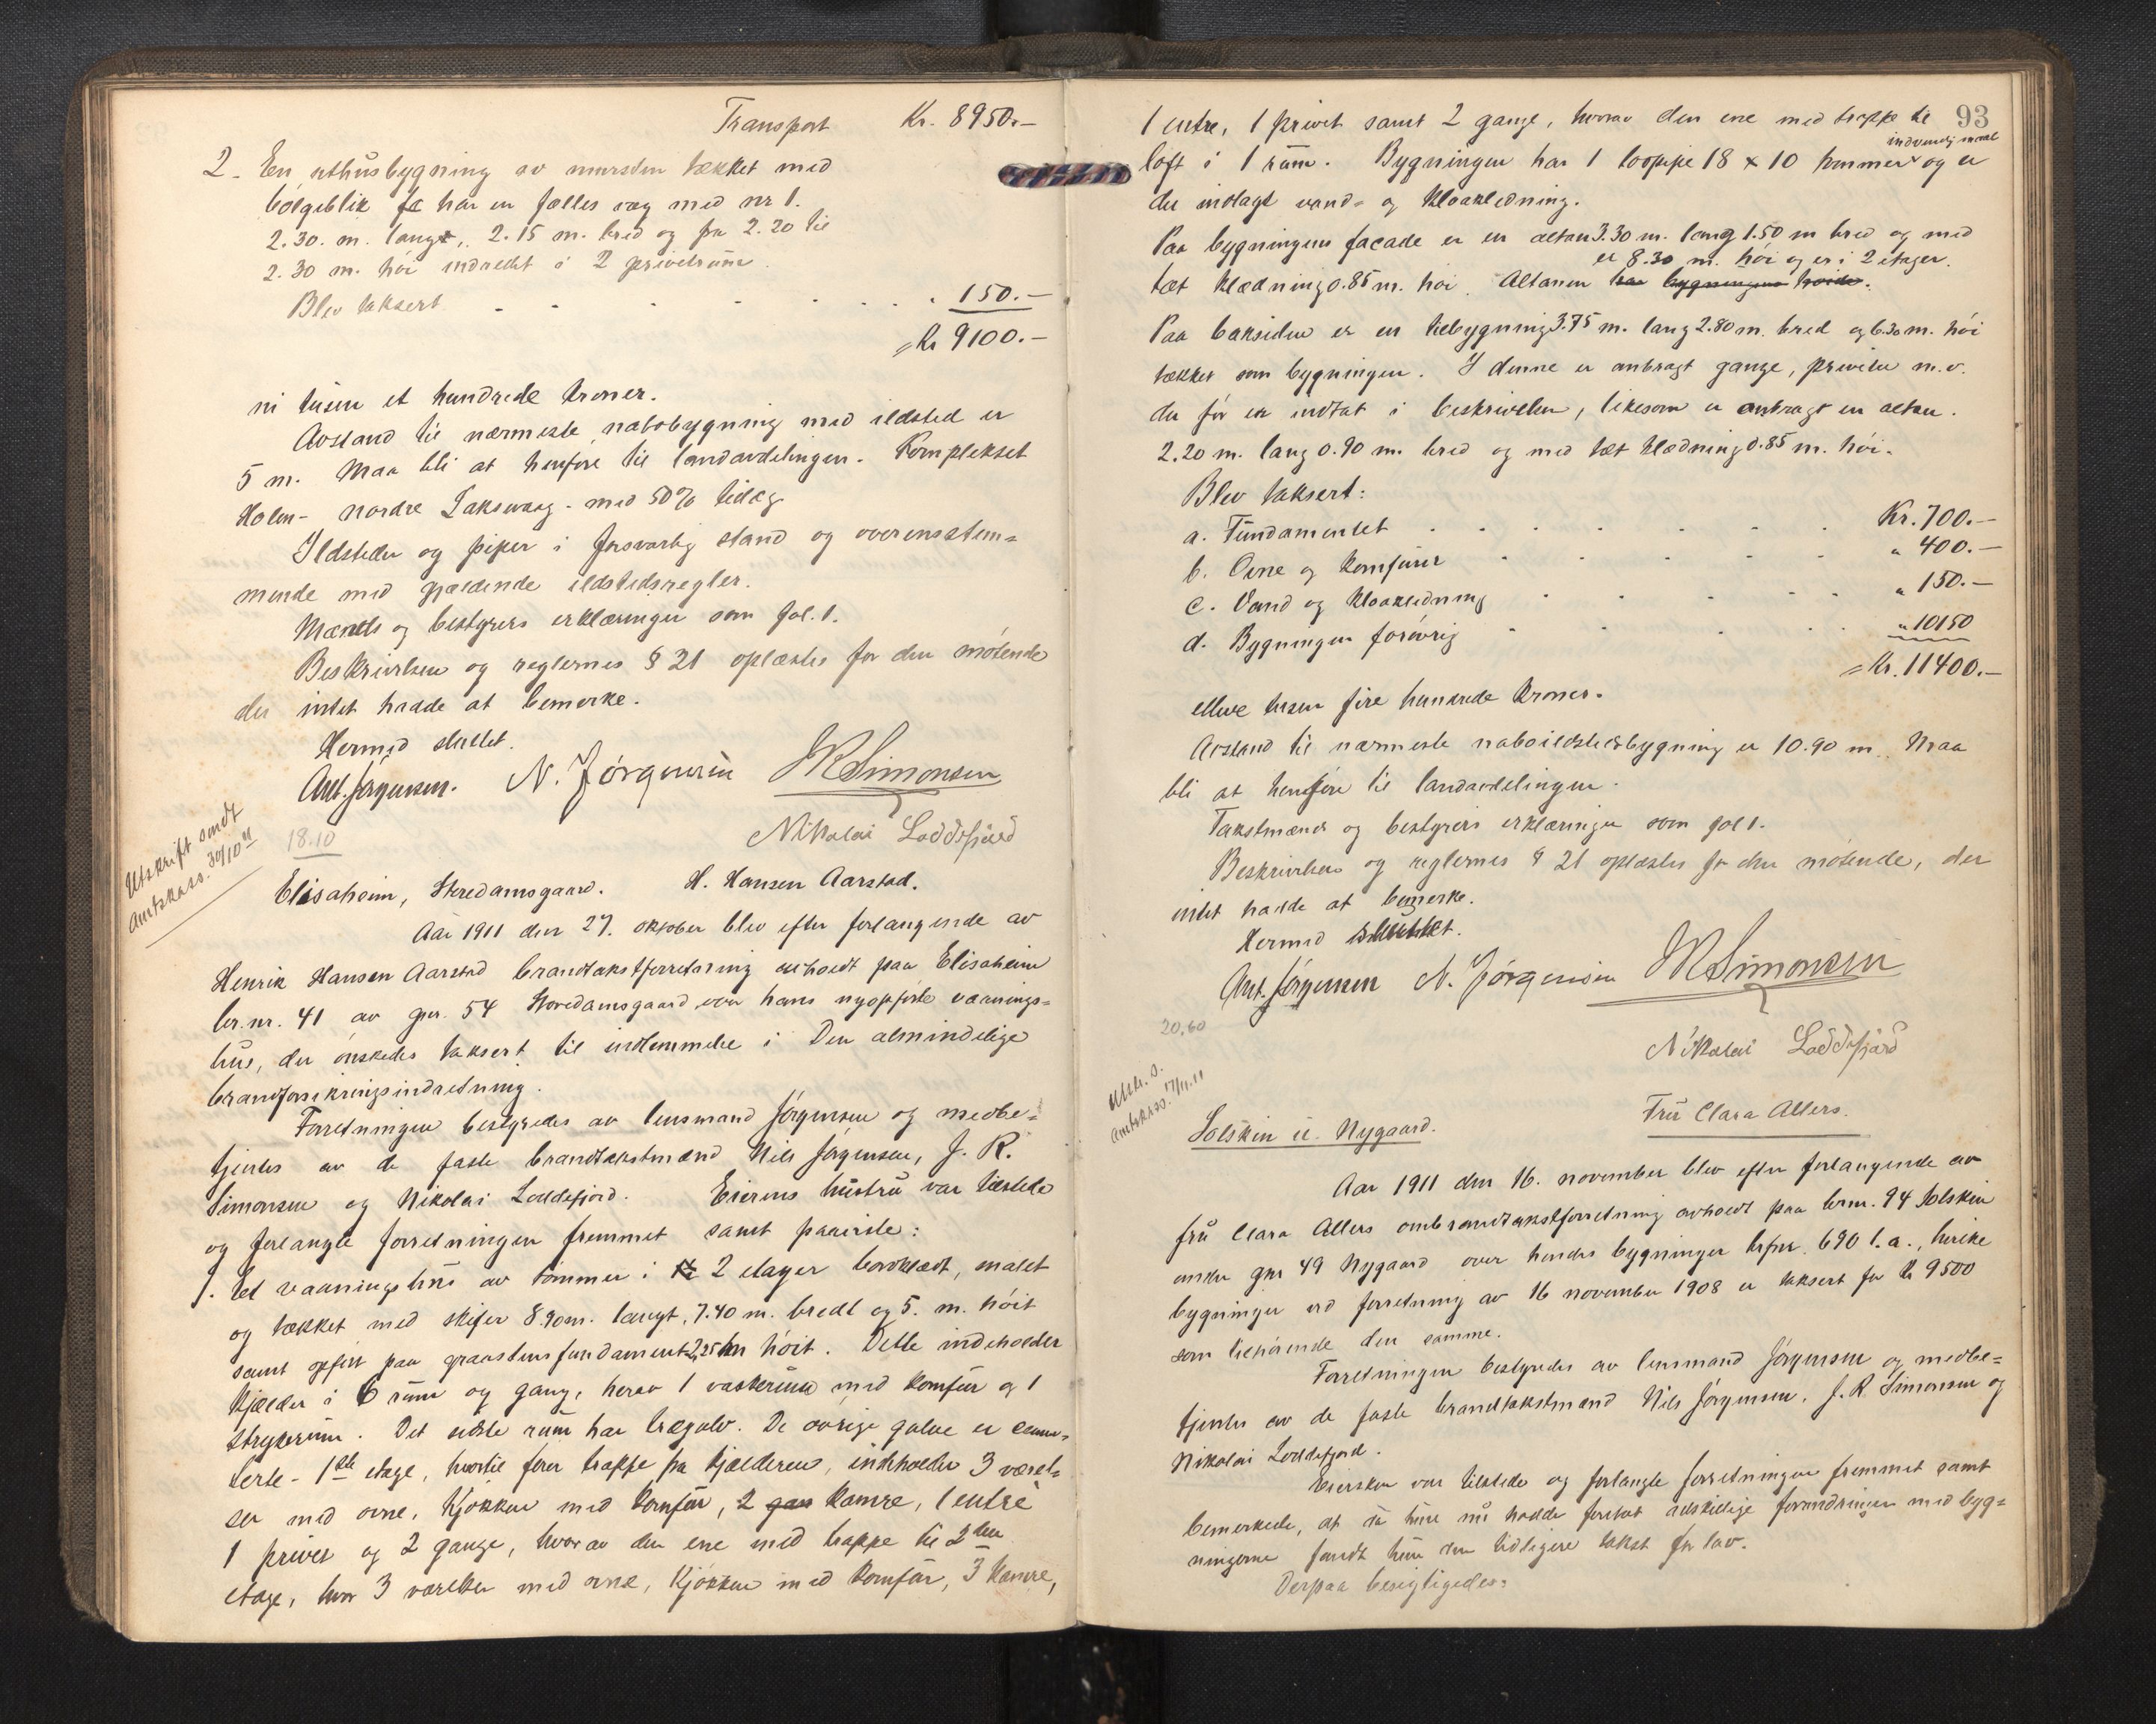 Transport Kr. 8950.-
2 - En uthusbygning av mursten tækket med
bølgeblik har en fælles væg med nr 1.
2.30. m. lang, 2.15 m. bred og fra 2.20 til
2.30 m. høi indredet i 2 privetrum
Blev taksert - - - - - - - " 150.-
= Kr 9100.-
ni tusen et hundrede kroner.
Avstand til nærmeste nabobygning med ildsted er
5 m. Maa bli at henføre til landavdelingen. Komplekset
Holen - nordre Laksevaag - med 50% tillæg
Ildsteder og piper i forsvarlig stand og overensstem=
mende med gjældende ildstedsregler.
Mænds og bestyrers erklæringer som fol. 1.
Beskrivelsen og reglernes § 21 oplæstes for den møtende
der intet hadde at bemerke.
Hermed sluttet.
Ant. Jørgensen. N. Jørgensen JRSimonsen
Nikolai Loddefjord
Utskrift sendt
Amtskass. 30/10 11
18.10
Elisaheim, Storedamsgaard. H. Hansen Aarstad.
Aar 1911 den 27. oktober blev efter forlangende av
Henrik Hansen Aarstad brandtakstforretning avholdt paa Elisaheim
br.nr. 41 av gnr. 54 Storedamsgaard over hans nyopførte vaanings=
hus, der ønskedes taksert til indlemmelse i Den almindelige
brandforsikringsindretning.
Forretningen bestyredes av lensmand Jørgensen og medbe=
tjentes av de faste brandtakstmænd Nils Jørgensen, J. R.
Simonsen og Nikolai Loddefjord. Eierens hustru var tilstede
og forlangte forretningen fremmet samt paaviste:
1. Et vaaningshus av tømmer i 2 etager bordklædt, malet
og tækket med skifer 8.90m. langt, 7.40 m. bredt og 5. m. høit
samt opført paa graastensfundament 2,25 m høit. Dette indeholder
kjælder i 6 rum og gang, herav 1 vaskerum med komfur og 1
strykerum. Det sidste rum har trægulv. De øvrige gulve er cemen=
terte - 1ste etage, hvortil fører trappe fra kjælderen, indeholder 3 værel=
ser med ovne, kjøkken med komfur, 2 gan kamre, 1 entre
1 privet og 2 gange, hvorav den ene med trappe til 2den
etage, hvor 3 værelser med ovne, kjøkken med komfur, 3 kamre,
93
1 entre, 1 privet samt 2 gange, hvorav den ene med trappe til
indvendig maal
loft i 1 rum. Bygningen har 1 løppipe 18 x 10 tommer og er
der indlagt vand- og kloakledning.
Paa bygningens facade er en altan 3.30 m. lang 1.50 m bred og med
er 8.30 m. høi og er i 2 etager.
tæt klædning 0.85 m. høi. Altanen har bygningens høide.
Paa baksiden er en tilbygning 3.75 m. lang 2.80 m. bred og 6.30 m. høi
tækket som bygningen. I denne er anbragt gange, priveter m.v.
der før er indtat i beskrivelsen, likesom er anbragt en altan.
2.20 m. lang 0.90 m. bred og med tæt klædning 0.85 m. høi.
Blev taksert:
a. Fundamentet - - - - - - Kr. 700.-
b. Ovne og komfurer - - - - - " 400.-
c. Vand og kloakledning - - - - - " 150.-
d. Bygningen forøvrig - - - - - " 10150
= Kr. 11400.-
elleve tusen fire hundrede kroner.
Avstand til nærmeste naboildstedsbygning er 10.90 m. Maa
bli at henføre til landavdelingen.
Takstmænds og bestyrers erklæringer som fol 1.
Beskrivelsen og reglernes § 21 oplæstes for den møtende, der
intet hadde at bemerke.
Hermed sluttet.
Ant. Jørgensen N. Jørgensen JRSimonsen
20,60
Nikolai Loddefjord
Utskr. s.
Amtskass. 17/11.11
Solskin u. Nygaard. Fru Clara Allers.
Aar 1911 den 16. november blev efter forlangende av
fru Clara Allers ombrandtakstforretning avholdt paa brnr. 94 Solskin
under gnr 49 Nygaard over hendes bygninger brfnr. 690 l.a., hvilke
bygninger ved forretning av 16 november 1908 er taksert for kr 9500
som tilhørende den samme.
Forretningen bestyredes av lensmand Jørgensen og medbe=
tjentes av de faste brandtakstmænd Nils Jørgensen, J. R Simonsen og
Nikolai Loddefjord.
Eiersken var tilstede og forlangte forretningen fremmet samt
bemerkede, at da hun nu hadde foretat adskillige forandringer med byg=
ningerne fandt hun den tidligere takst for lav.
Derpaa besigtigedes: